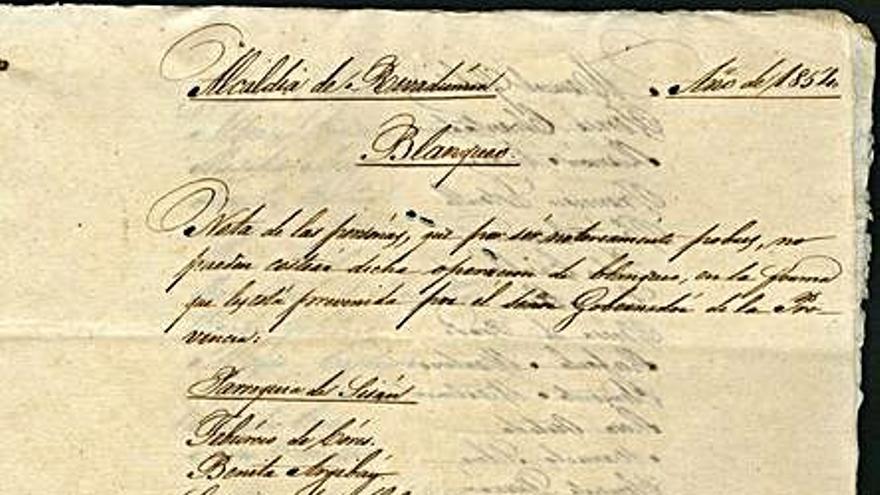 Alcaldía de Rivadumia. Año de 1854.
Blanqueo.
Nota de las personas, que por sér notoriamente pobres, no
puedan costear dicha operacion de blanqueo, en la forma
que les está prevenida por el Señor Gobernador de la Pro-
vincia:
Parroquia de Sisán
Benita Argibay